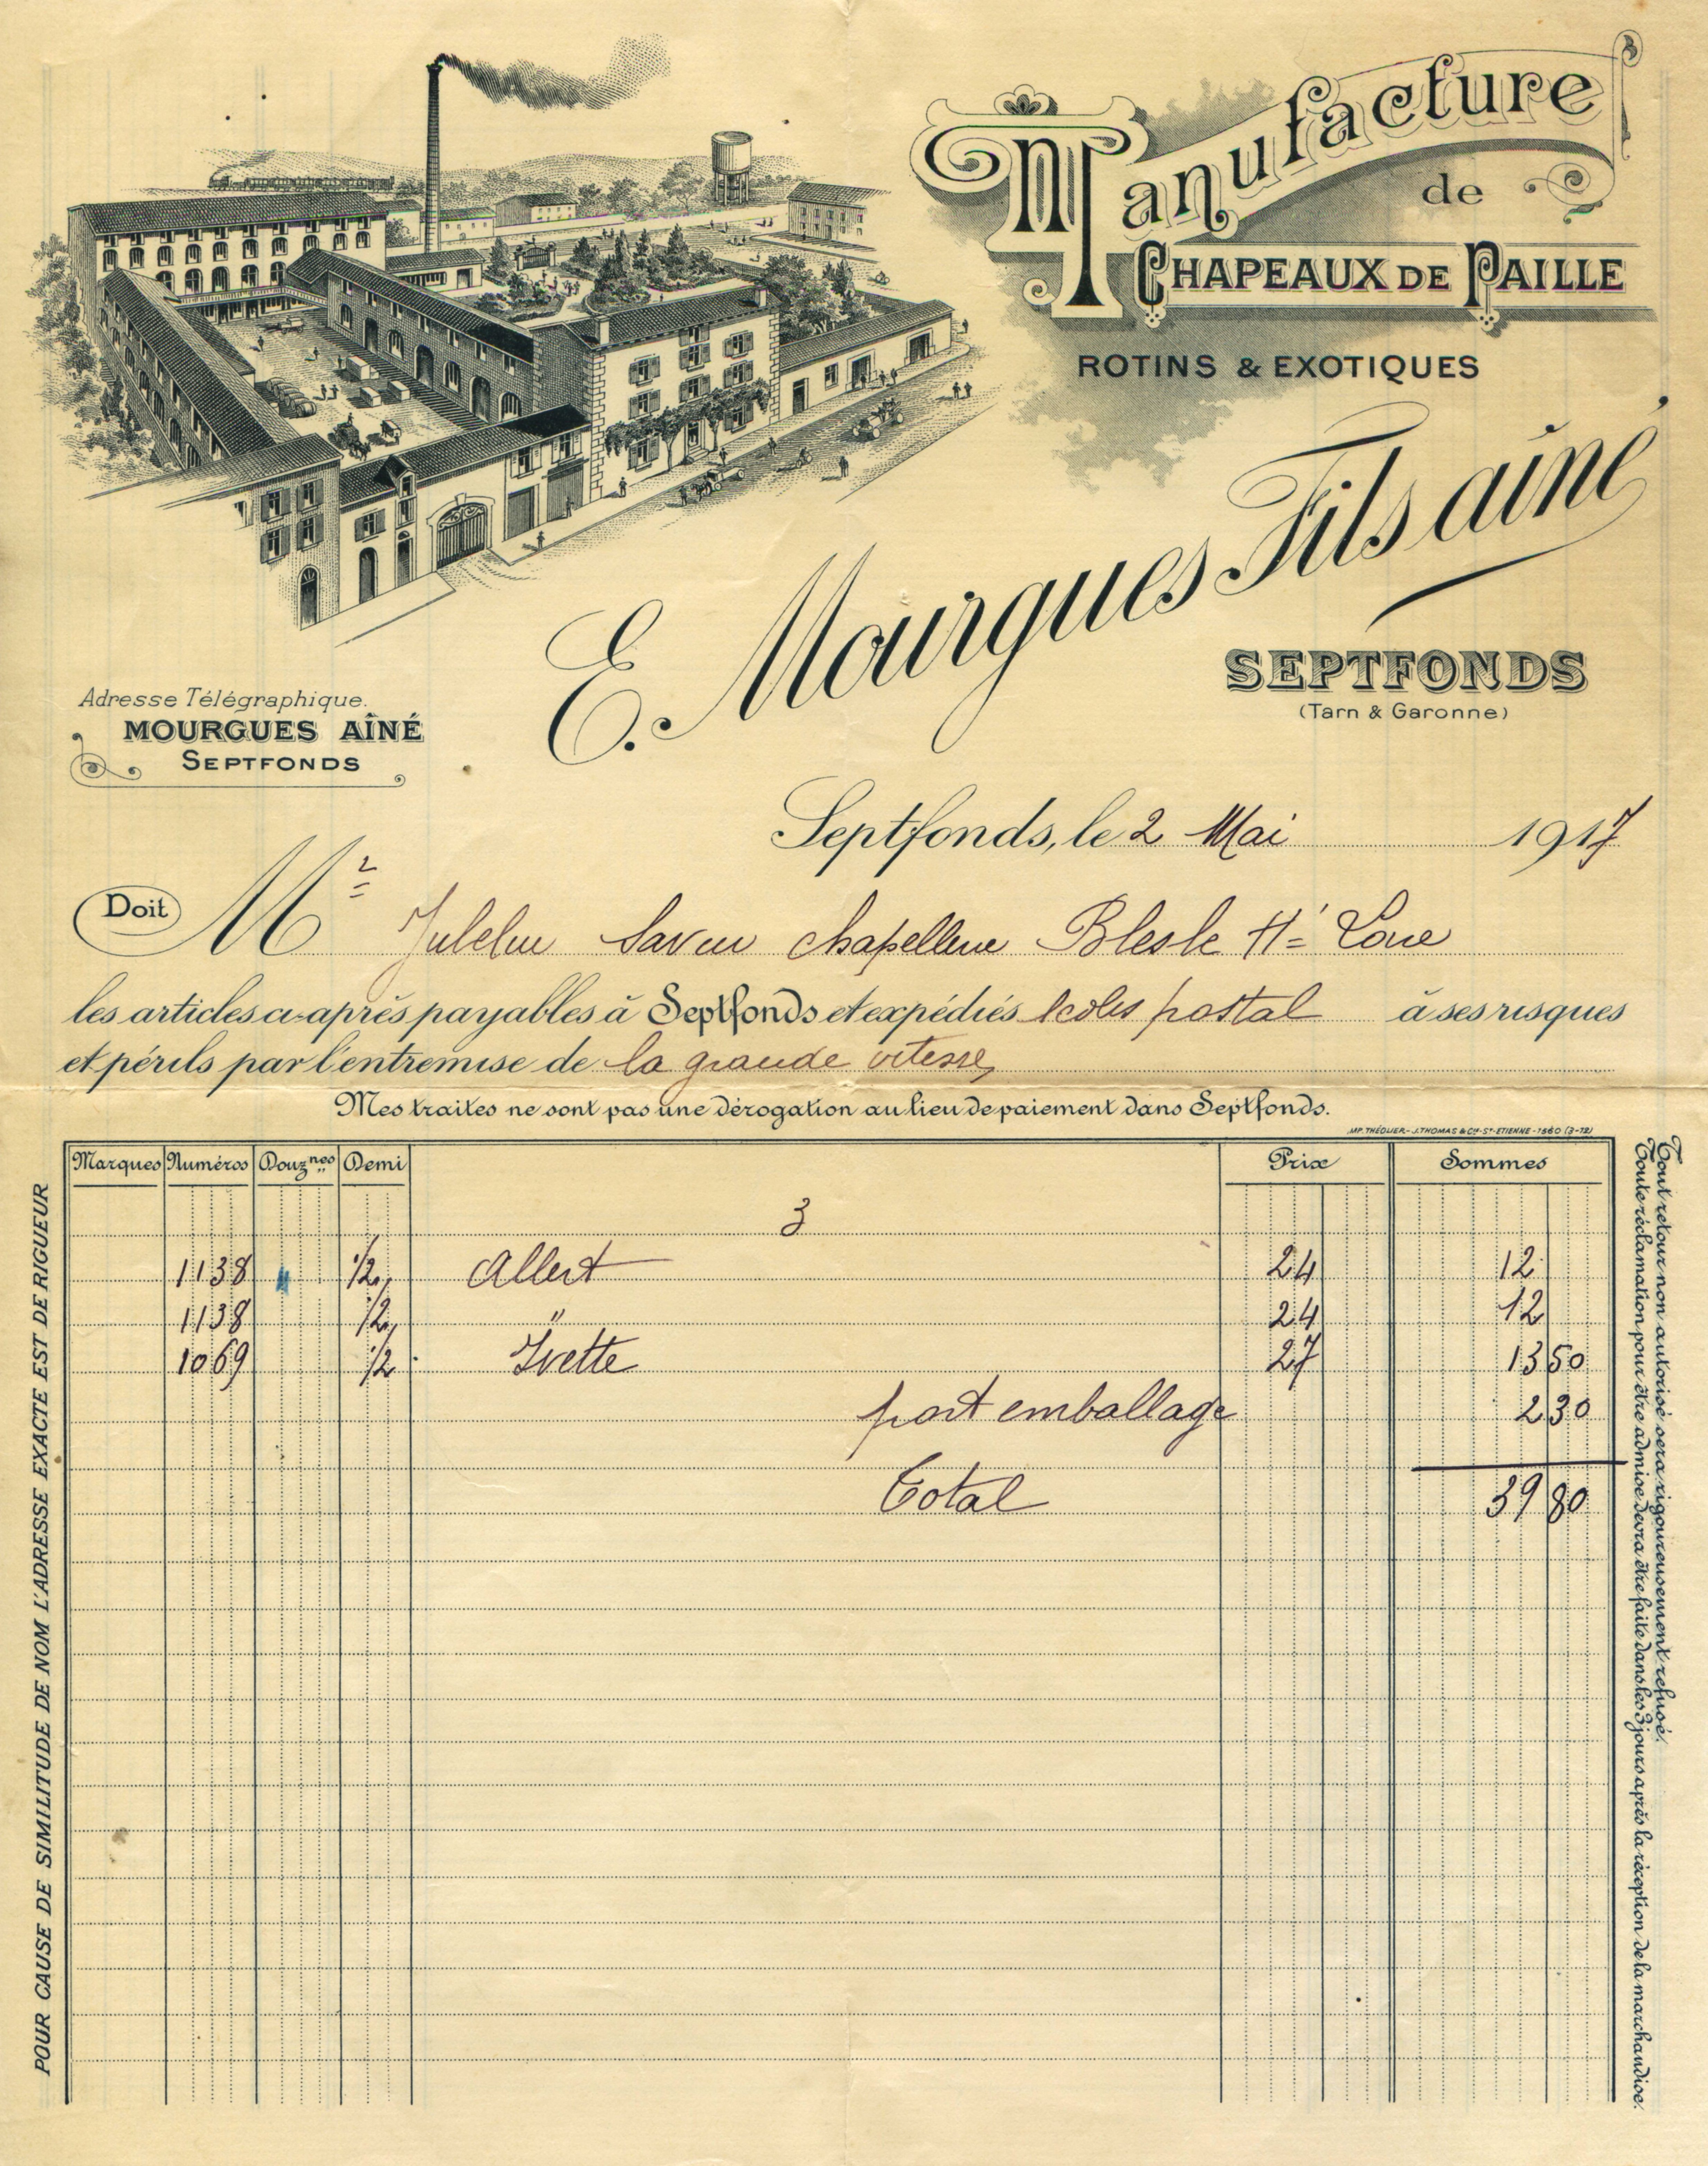 Manufacture
de
CHAPEAUX DE PAILLE
ROTINS & EXOTIQUES
E. Mourgues Fils aîné
SEPTFONDS
(Tarn & Garonne)
Adresse Télégraphique.
MOURGUES AÎNÉ
SEPTFONDS
Septfonds, le 2 Mai 1917
Doit Mr chapellerie Blesle Hte Loire
les articles ci-après payables à Septfonds et expédiés 1 colis postal à ses risques
et périls par l'entremise de la grande vitesse
Mes traites ne sont pas une dérogation au lieu de paiement dans Septfonds.
IMP. THÉOLIER - J. THOMAS & Cie - St-ETIENNE - 1560 (3-12)
Marques Numéros Douznes Demi Prix Sommes
3
1138 1/2 Albert 24 12
1138 1/2 " 24 12
1069 1/2 Yvette 27 13 50
port emballage 2 30
Total 39 80
POUR CAUSE DE SIMILITUDE DE NOM L'ADRESSE EXACTE EST DE RIGUEUR
Tout retour non autorisé sera rigoureusement refusé.
Toute réclamation pour être admise devra être faite dans les 3 jours après la réception de la marchandise.